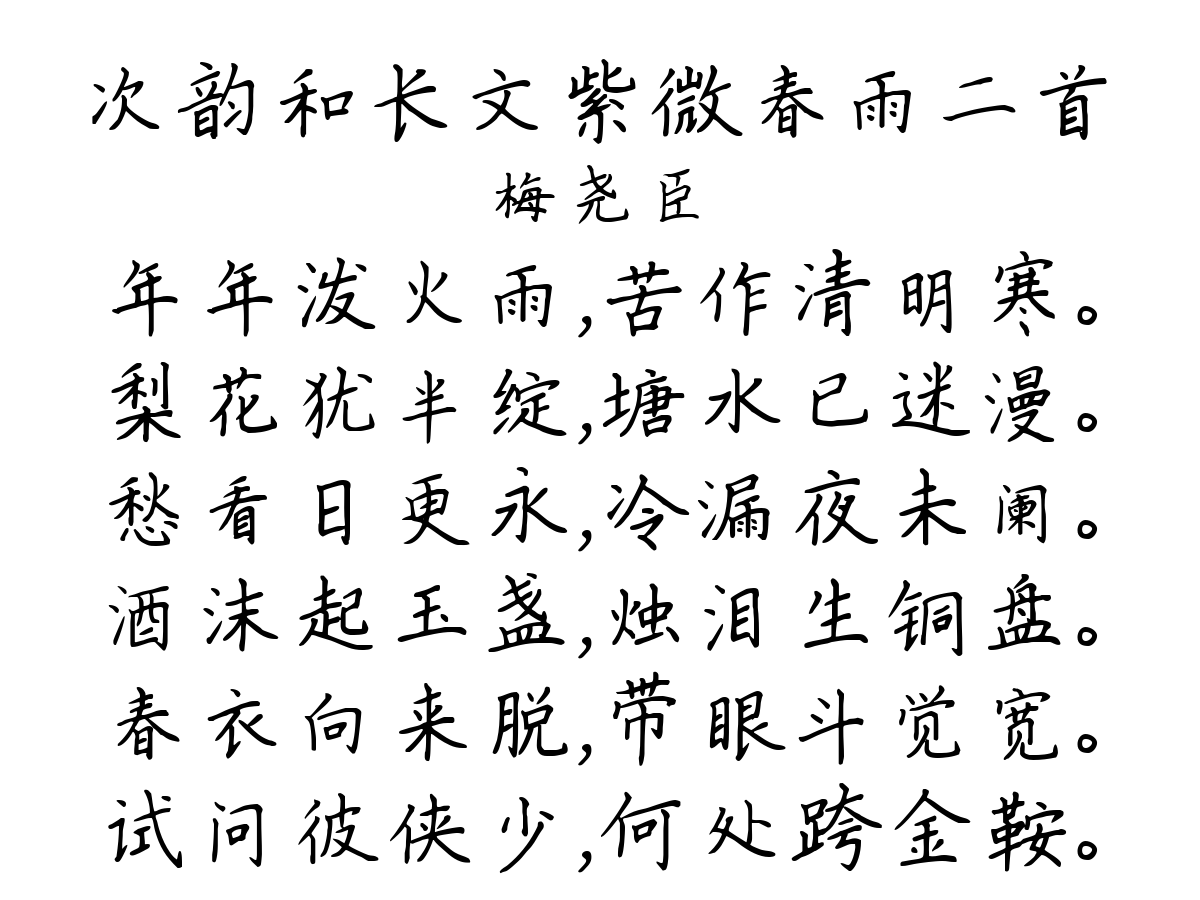 次韵和长文紫微春雨二首
梅尧臣
年年泼火雨,苦作清明寒。
梨花犹半绽,塘水已迷漫。
愁看日更永,冷漏夜未阑。
酒沫起玉盏,烛泪生铜盘。
春衣向来脱,带眼斗觉宽。
试问彼侠少,何处跨金鞍。